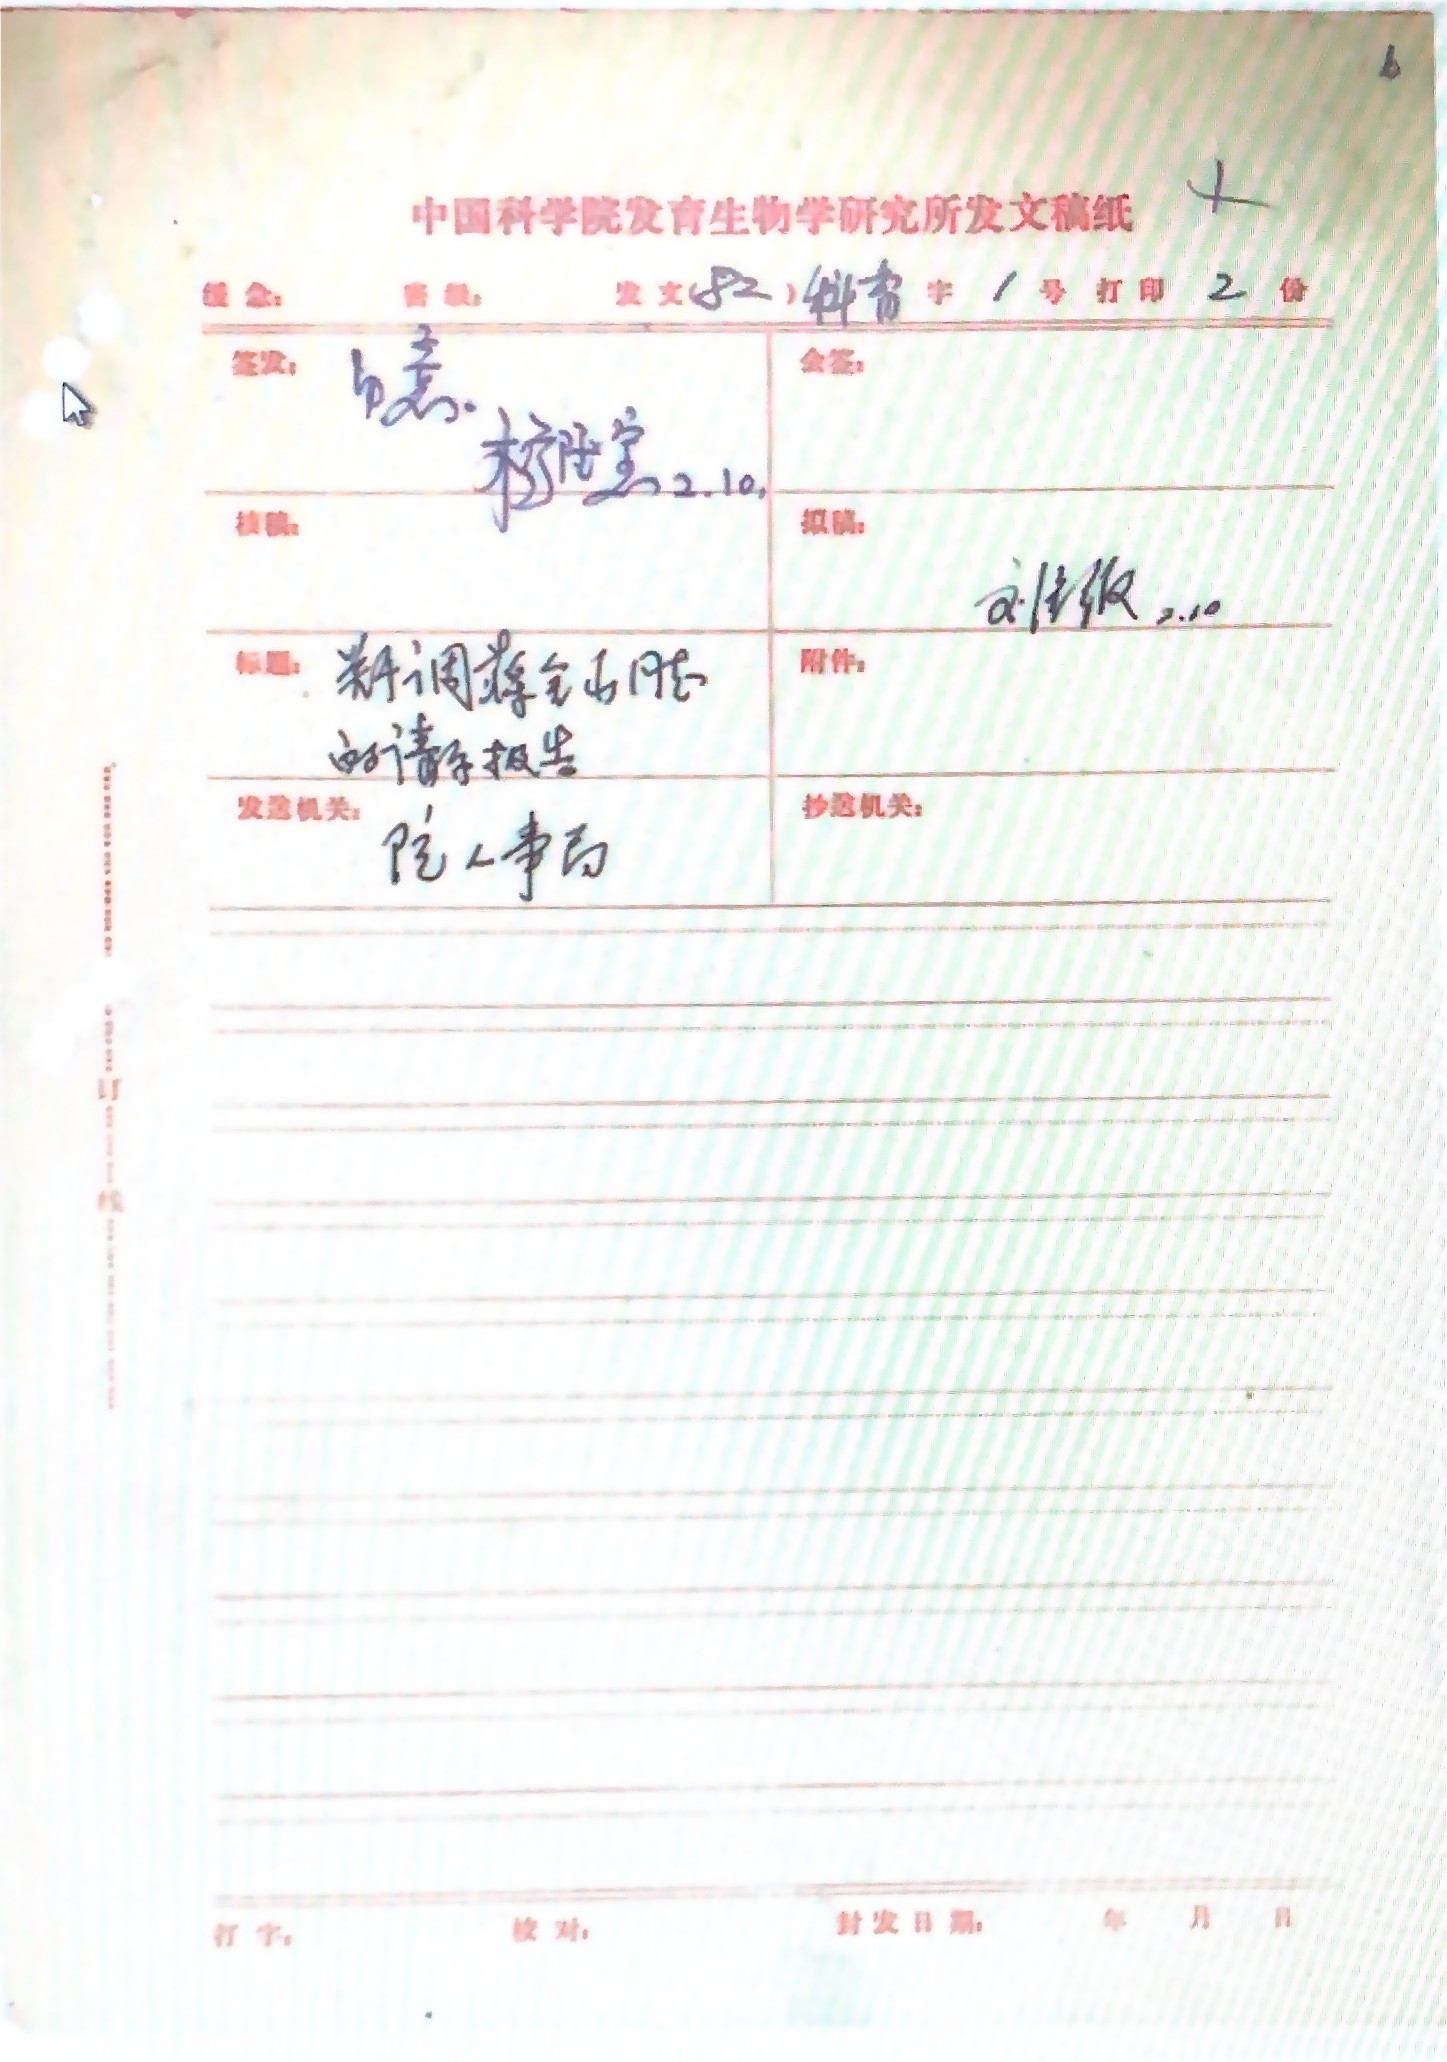 6
中国科学院发育生物学研究所发文稿纸
缓急： 密级： 发文(82)科育字1号 打印2份
签发： 2.10.
会签：
核稿：
拟稿： 2.10
标题： 调蒋全占同志
的请示报告
附件：
发送机关： 院人事局
抄送机关：
订
线
打字： 校对： 封发日期： 年 月 日